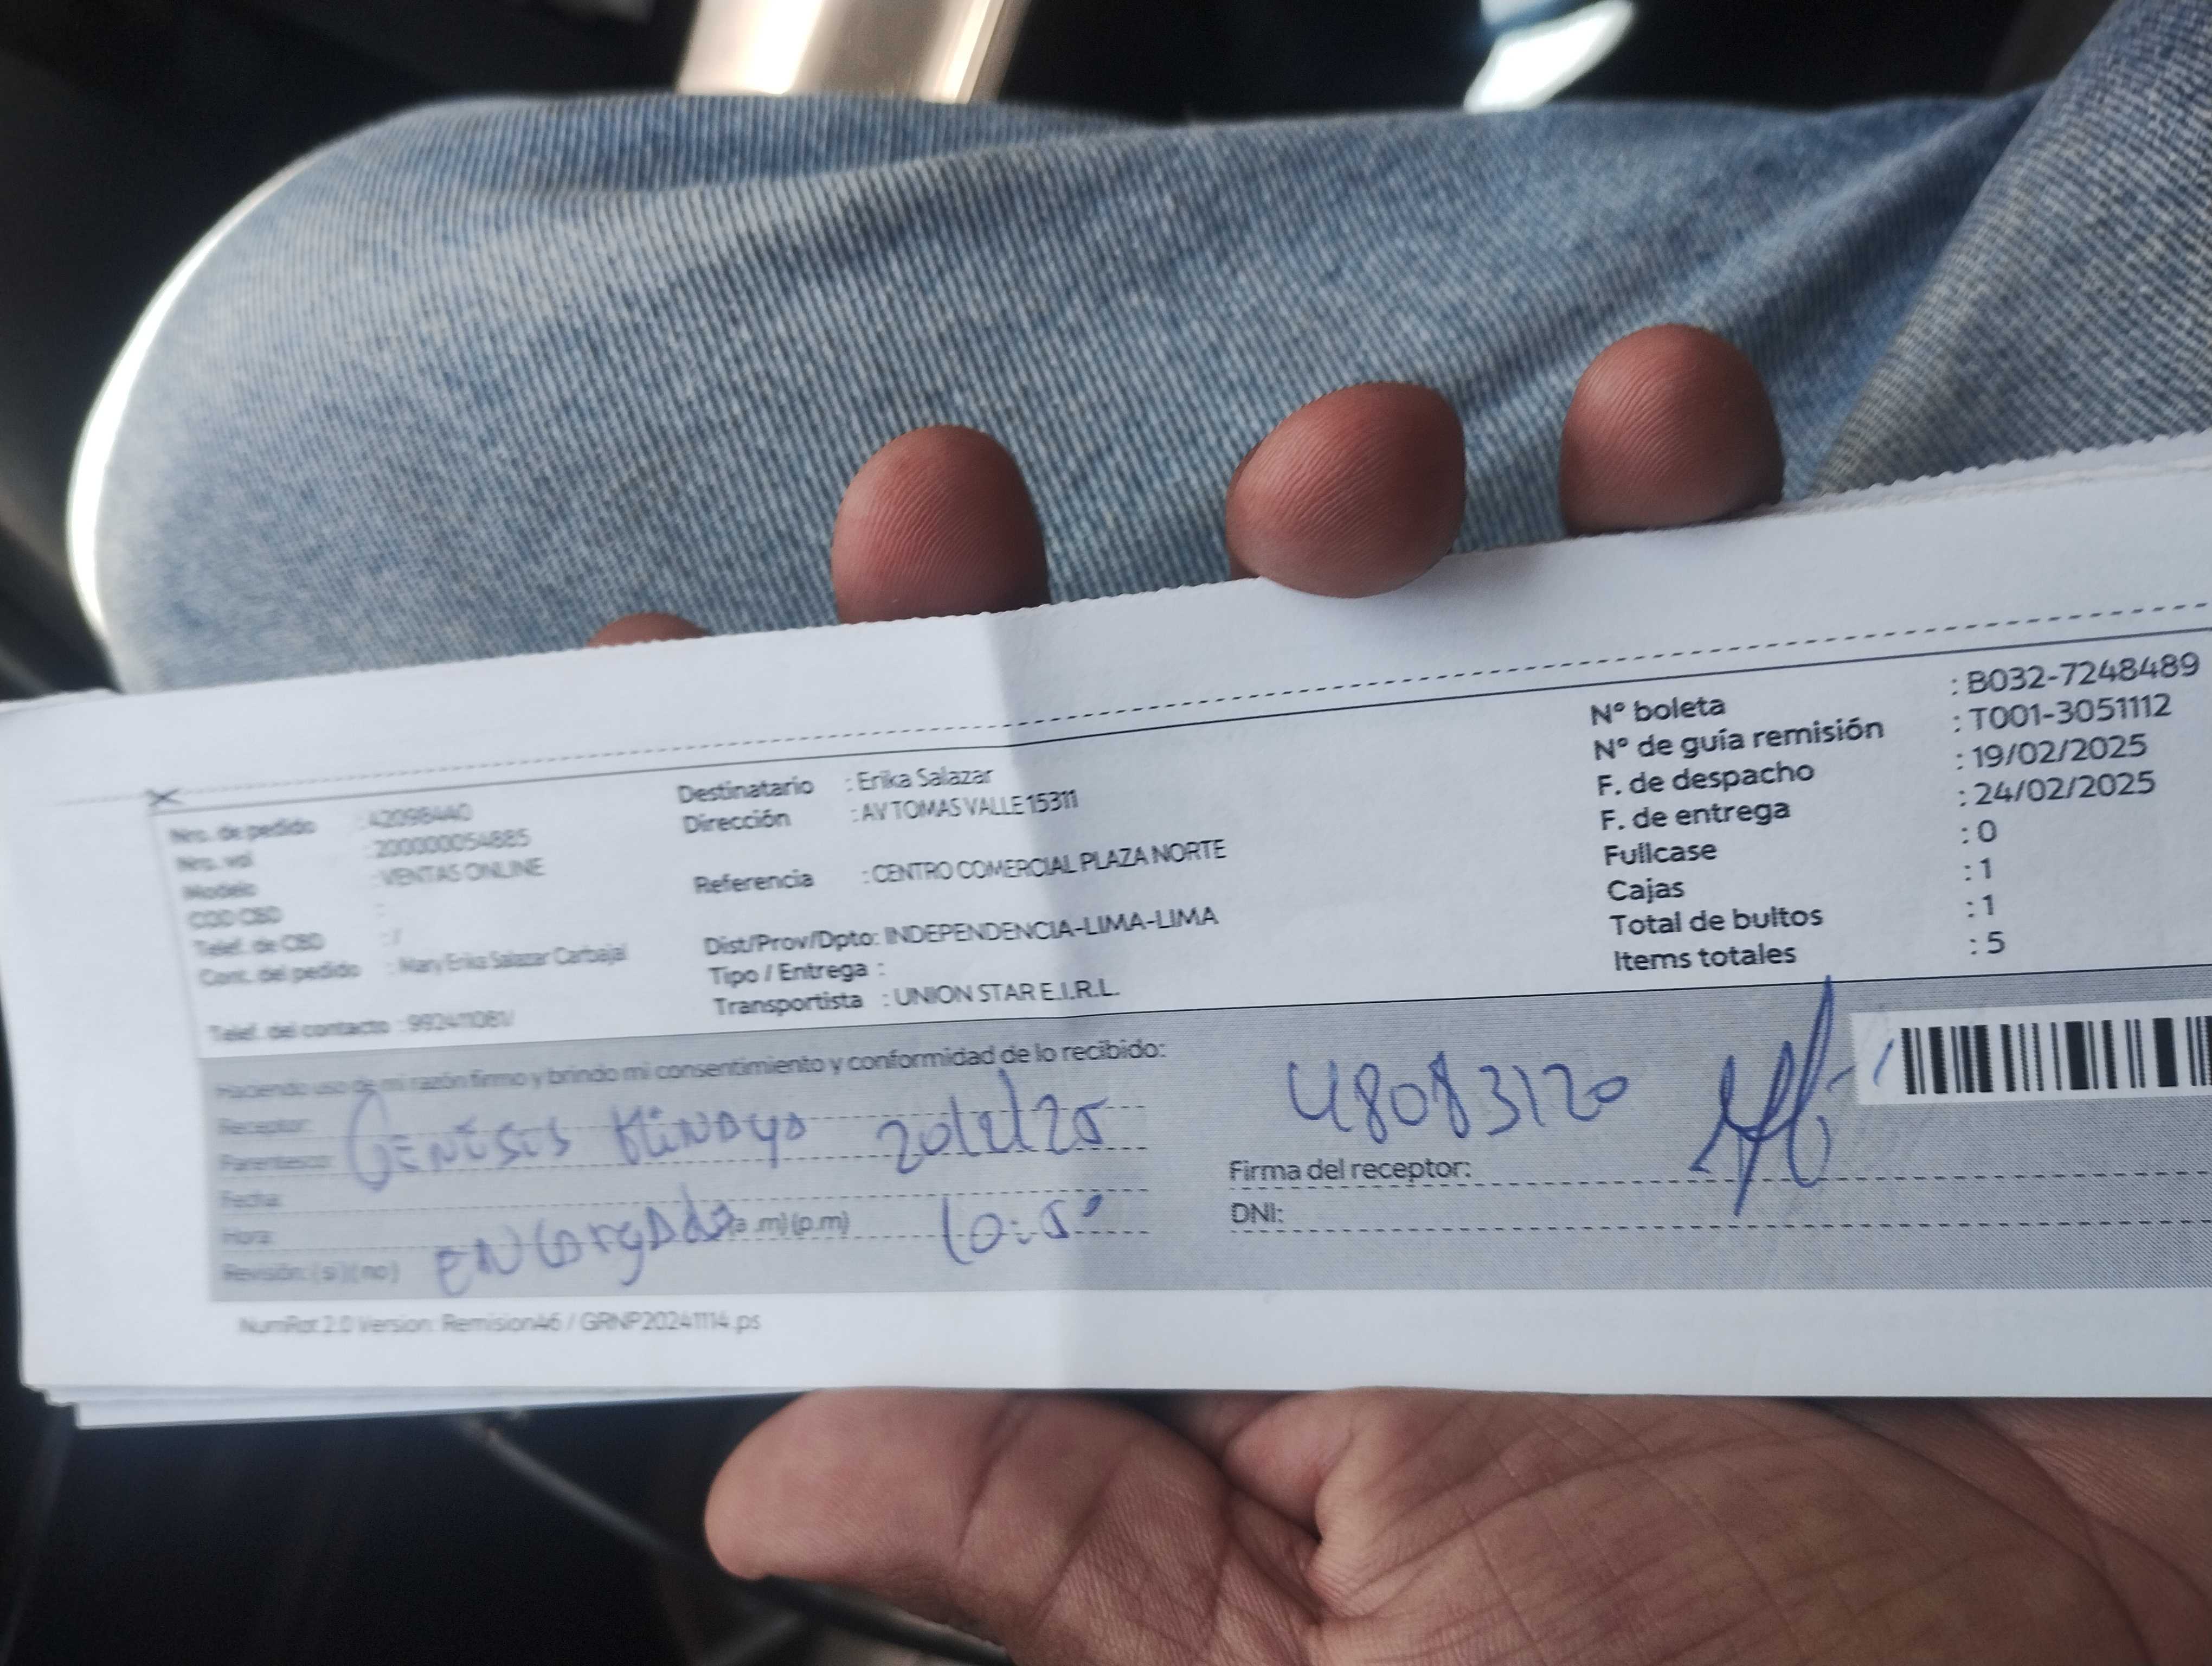 Nro. de pedido : 42098440
Nro. vol : 200000054885
Modelo : VENTAS ONLINE
COD CBD :
Telef. de CBD : /
Cont. del pedido : Mary Erika Salazar Carbajal
Telef. del contacto : 992411081/
Destinatario : Erika Salazar
Dirección : AV TOMAS VALLE 15311
Referencia : CENTRO COMERCIAL PLAZA NORTE
Dist/Prov/Dpto: INDEPENDENCIA-LIMA-LIMA
Tipo / Entrega :
Transportista : UNION STAR E.I.R.L.
N° boleta : B032-7248489
N° de guía remisión : T001-3051112
F. de despacho : 19/02/2025
F. de entrega : 24/02/2025
Fullcase : 0
Cajas : 1
Total de bultos : 1
Items totales : 5
Haciendo uso de mi razón firmo y brindo mi consentimiento y conformidad de lo recibido:
Receptor:
Parentesco:
GENESIS 20/2/25
Fecha:
Hora: (a .m) (p.m)
Revisión: (si) (no)
ENCArgADo
48083120
Firma del receptor:
DNI:
NumRot 2.0 Version: Remision46 / GRNP20241114.ps